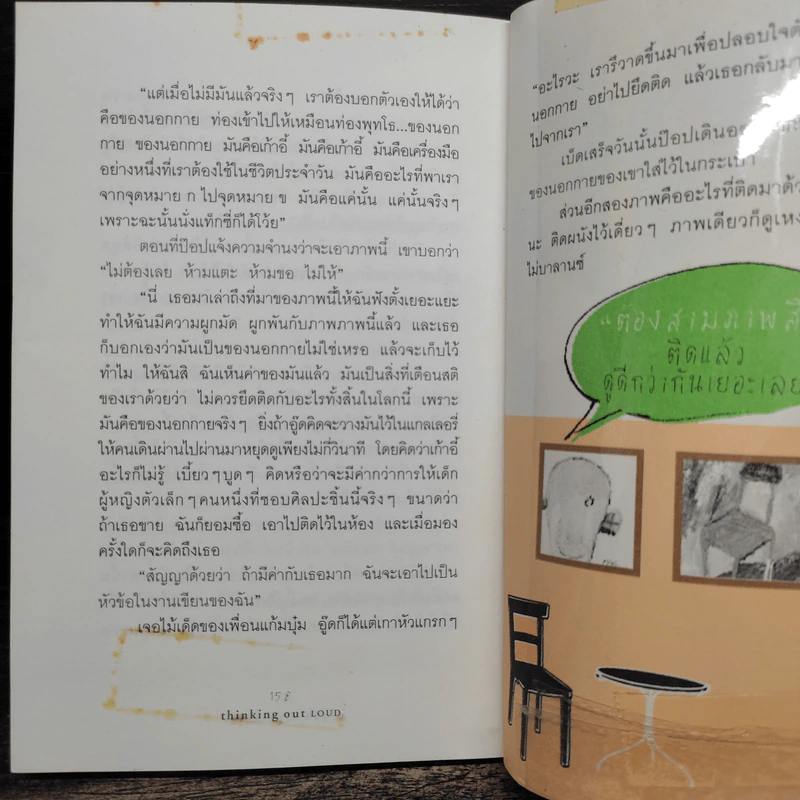 “แต่เมื่อไม่มีมันแล้วจริงๆ เราต้องบอกตัวเองให้ได้ว่า
คือของนอกกาย ท่องเข้าไปให้เหมือนท่องพุทโธ...ของนอก
กาย ของนอกกาย มันคือเก้าอี้ มันคือเก้าอี้ มันคือเครื่องมือ
อย่างหนึ่งที่เราต้องใช้ในชีวิตประจำวัน มันคืออะไรที่พาเรา
จากจุดหมาย ก ไปจุดหมาย ข มันคือแค่นั้น แค่นั้นจริงๆ
เพราะฉะนั้นนั่งแท็กซี่ก็ได้โว้ย”
ตอนที่ป๊อปแจ้งความจำนงว่าจะเอาภาพนี้ เขาบอกว่า
“ไม่ต้องเลย ห้ามแตะ ห้ามขอ ไม่ให้”
“นี่ เธอมาเล่าถึงที่มาของภาพนี้ให้ฉันฟังตั้งเยอะแยะ
ทำให้ฉันมีความผูกมัด ผูกพันกับภาพภาพนี้แล้ว และเธอ
ก็บอกเองว่ามันเป็นของนอกกายไม่ใช่เหรอ แล้วจะเก็บไว้
ทำไม ให้ฉันสิ ฉันเห็นค่าของมันแล้ว มันเป็นสิ่งที่เตือนสติ
ของเราด้วยว่า ไม่ควรยึดติดกับอะไรทั้งสิ้นในโลกนี้ เพราะ
มันคือของนอกกายจริงๆ ยิ่งถ้าอู๊ดคิดจะวางมันไว้ในแกลเลอรี่
ให้คนเดินผ่านไปผ่านมาหยุดดูเพียงไม่กี่วินาที โดยคิดว่าเก้าอี้
อะไรก็ไม่รู้ เบี้ยวๆบูดๆ คิดหรือว่าจะมีค่ากว่าการให้เด็ก
ผู้หญิงตัวเล็กๆคนหนึ่งที่ชอบศิลปะชิ้นนี้จริงๆ ขนาดว่า
ถ้าเธอขาย ฉันก็ยอมซื้อ เอาไปติดไว้ในห้อง และเมื่อมอง
ครั้งใดก็จะคิดถึงเธอ
“สัญญาด้วยว่า ถ้ามีค่ากับเธอมาก ฉันจะเอาไปเป็น
หัวข้อในงานเขียนของฉัน”
เจอไม้เด็ดของเพื่อนแก้มบุ๋ม อู๊ดก็ได้แต่เกาหัวแกรกๆ
158
thinking out LOUD
“อะไรวะ เรารีวาดขึ้นมาเพื่อปลอบใจ
นอกกาย อย่าไปยึดติด แล้วเธอกลับมา
ไปจากเรา”
เบ็ดเสร็จวันนั้นป๊อปเดิน
ของนอกกายของเขาใส่ไว้ในกระเป๋า
ส่วนอีกสองภาพคืออะไรที่ติดมาด้ว
นะ ติดผนังไว้เดี่ยวๆ ภาพเดียวก็ดูเหง
ไม่บาลานซ์
“ต้องสามภาพสิ
ติดแล้ว
ดูดีกว่ากันเยอะเลย